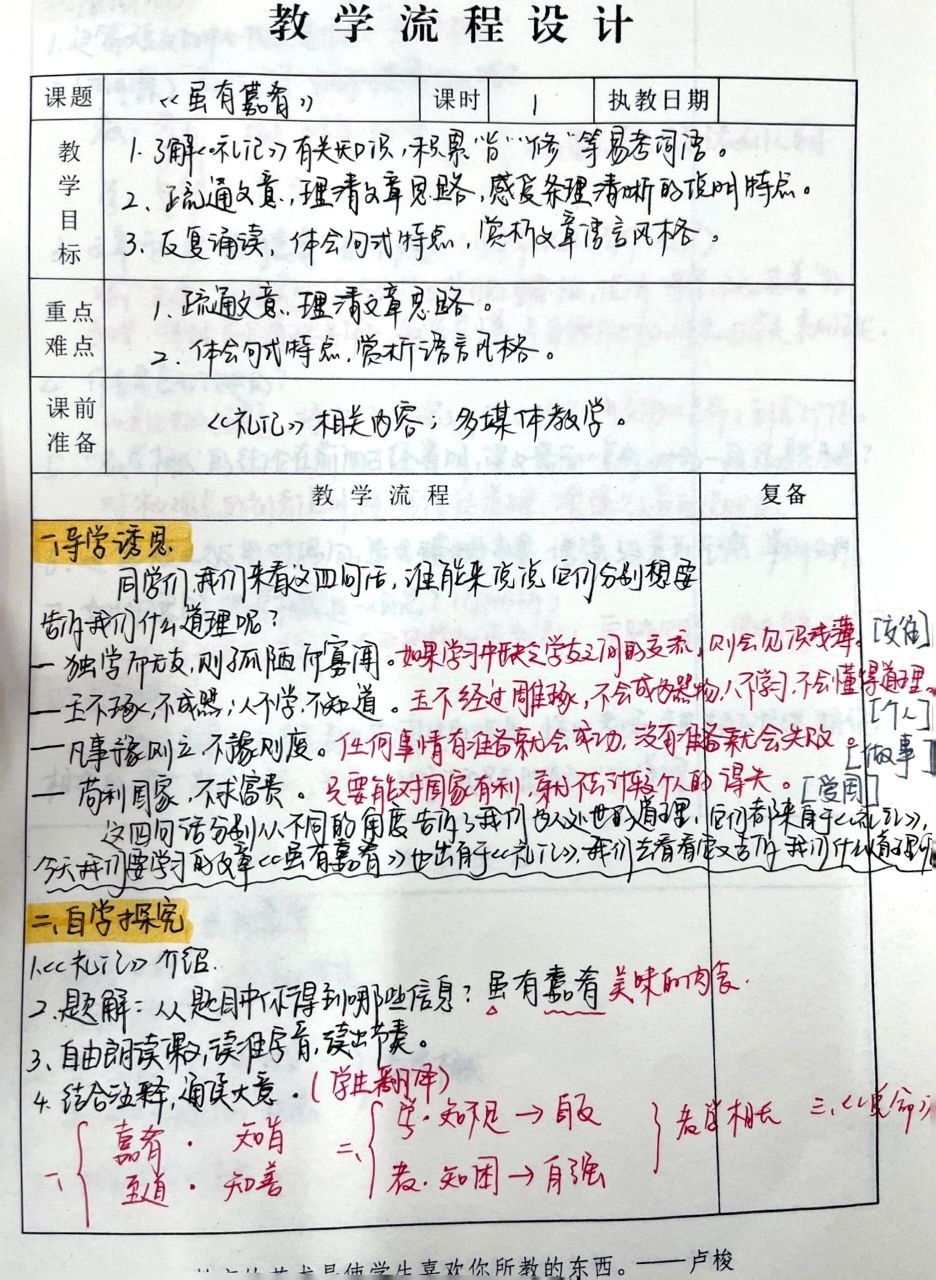 教学流程设计
课题 《虽有嘉肴》 课时 1 执教日期
教学目标
1. 了解《礼记》有关知识,积累"旨""修"等易考词语。
2. 疏通文意,理清文章思路,感受条理清晰的说明特点。
3. 反复诵读,体会句式特点,赏析文章语言风格。
重点难点
1. 疏通文意,理清文章思路。
2. 体会句式特点,赏析语言风格。
课前准备
《礼记》相关内容;多媒体教学。
教学流程 复备
一、导学诱思
同学们,我们来看这四句话,谁能来说说它们分别想要
告诉我们什么道理呢?
一 独学而无友,则孤陋而寡闻。如果学习中缺乏学友之间的交流,则会见识浅薄。[交往]
一 玉不琢,不成器;人不学,不知道。玉不经过雕琢,不会成为器物,人不学习,不会懂得道理。
[个人]
一 凡事豫则立,不豫则废。任何事情有准备就会成功,没有准备就会失败。[做事]
一 苟利国家,不求富贵。只要能对国家有利,就不去计较个人的得失。[爱国]
这四句话分别从不同的角度告诉了我们为人处世的道理,它们都来自于《礼记》,
今天我们要学习的文章《虽有嘉肴》也出自于《礼记》,我们去看看它又告诉我们什么道理
二、自学探究
1.《礼记》介绍.
2. 题解:从题目中你得到哪些信息?虽有嘉肴 美味的肉食.
3、自由朗读课文,读准字音,读出节奏。
4. 结合注释,通读大意.(学生翻译)
一、 嘉肴 · 知旨
至道 · 知善
二、 学 · 知不足 → 自反
教 · 知困 → 自强
教学相长
三、《兑命》
是使学生喜欢你所教的东西。——卢梭